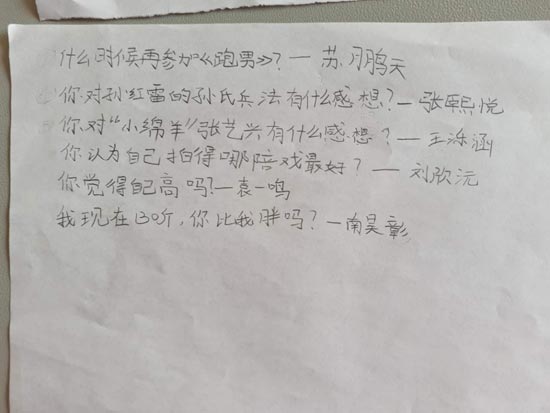 什么时候再参加《跑男》?—苏鹏天
你对孙红雷的孙氏兵法有什么感想?—张熙悦
你对“小绵羊”张艺兴有什么感想?—王泺涵
你认为自己拍得哪陪戏最好?—刘欣沅
你觉得自己高吗?—袁一鸣
我现在130斤,你比我胖吗?—南昊彰